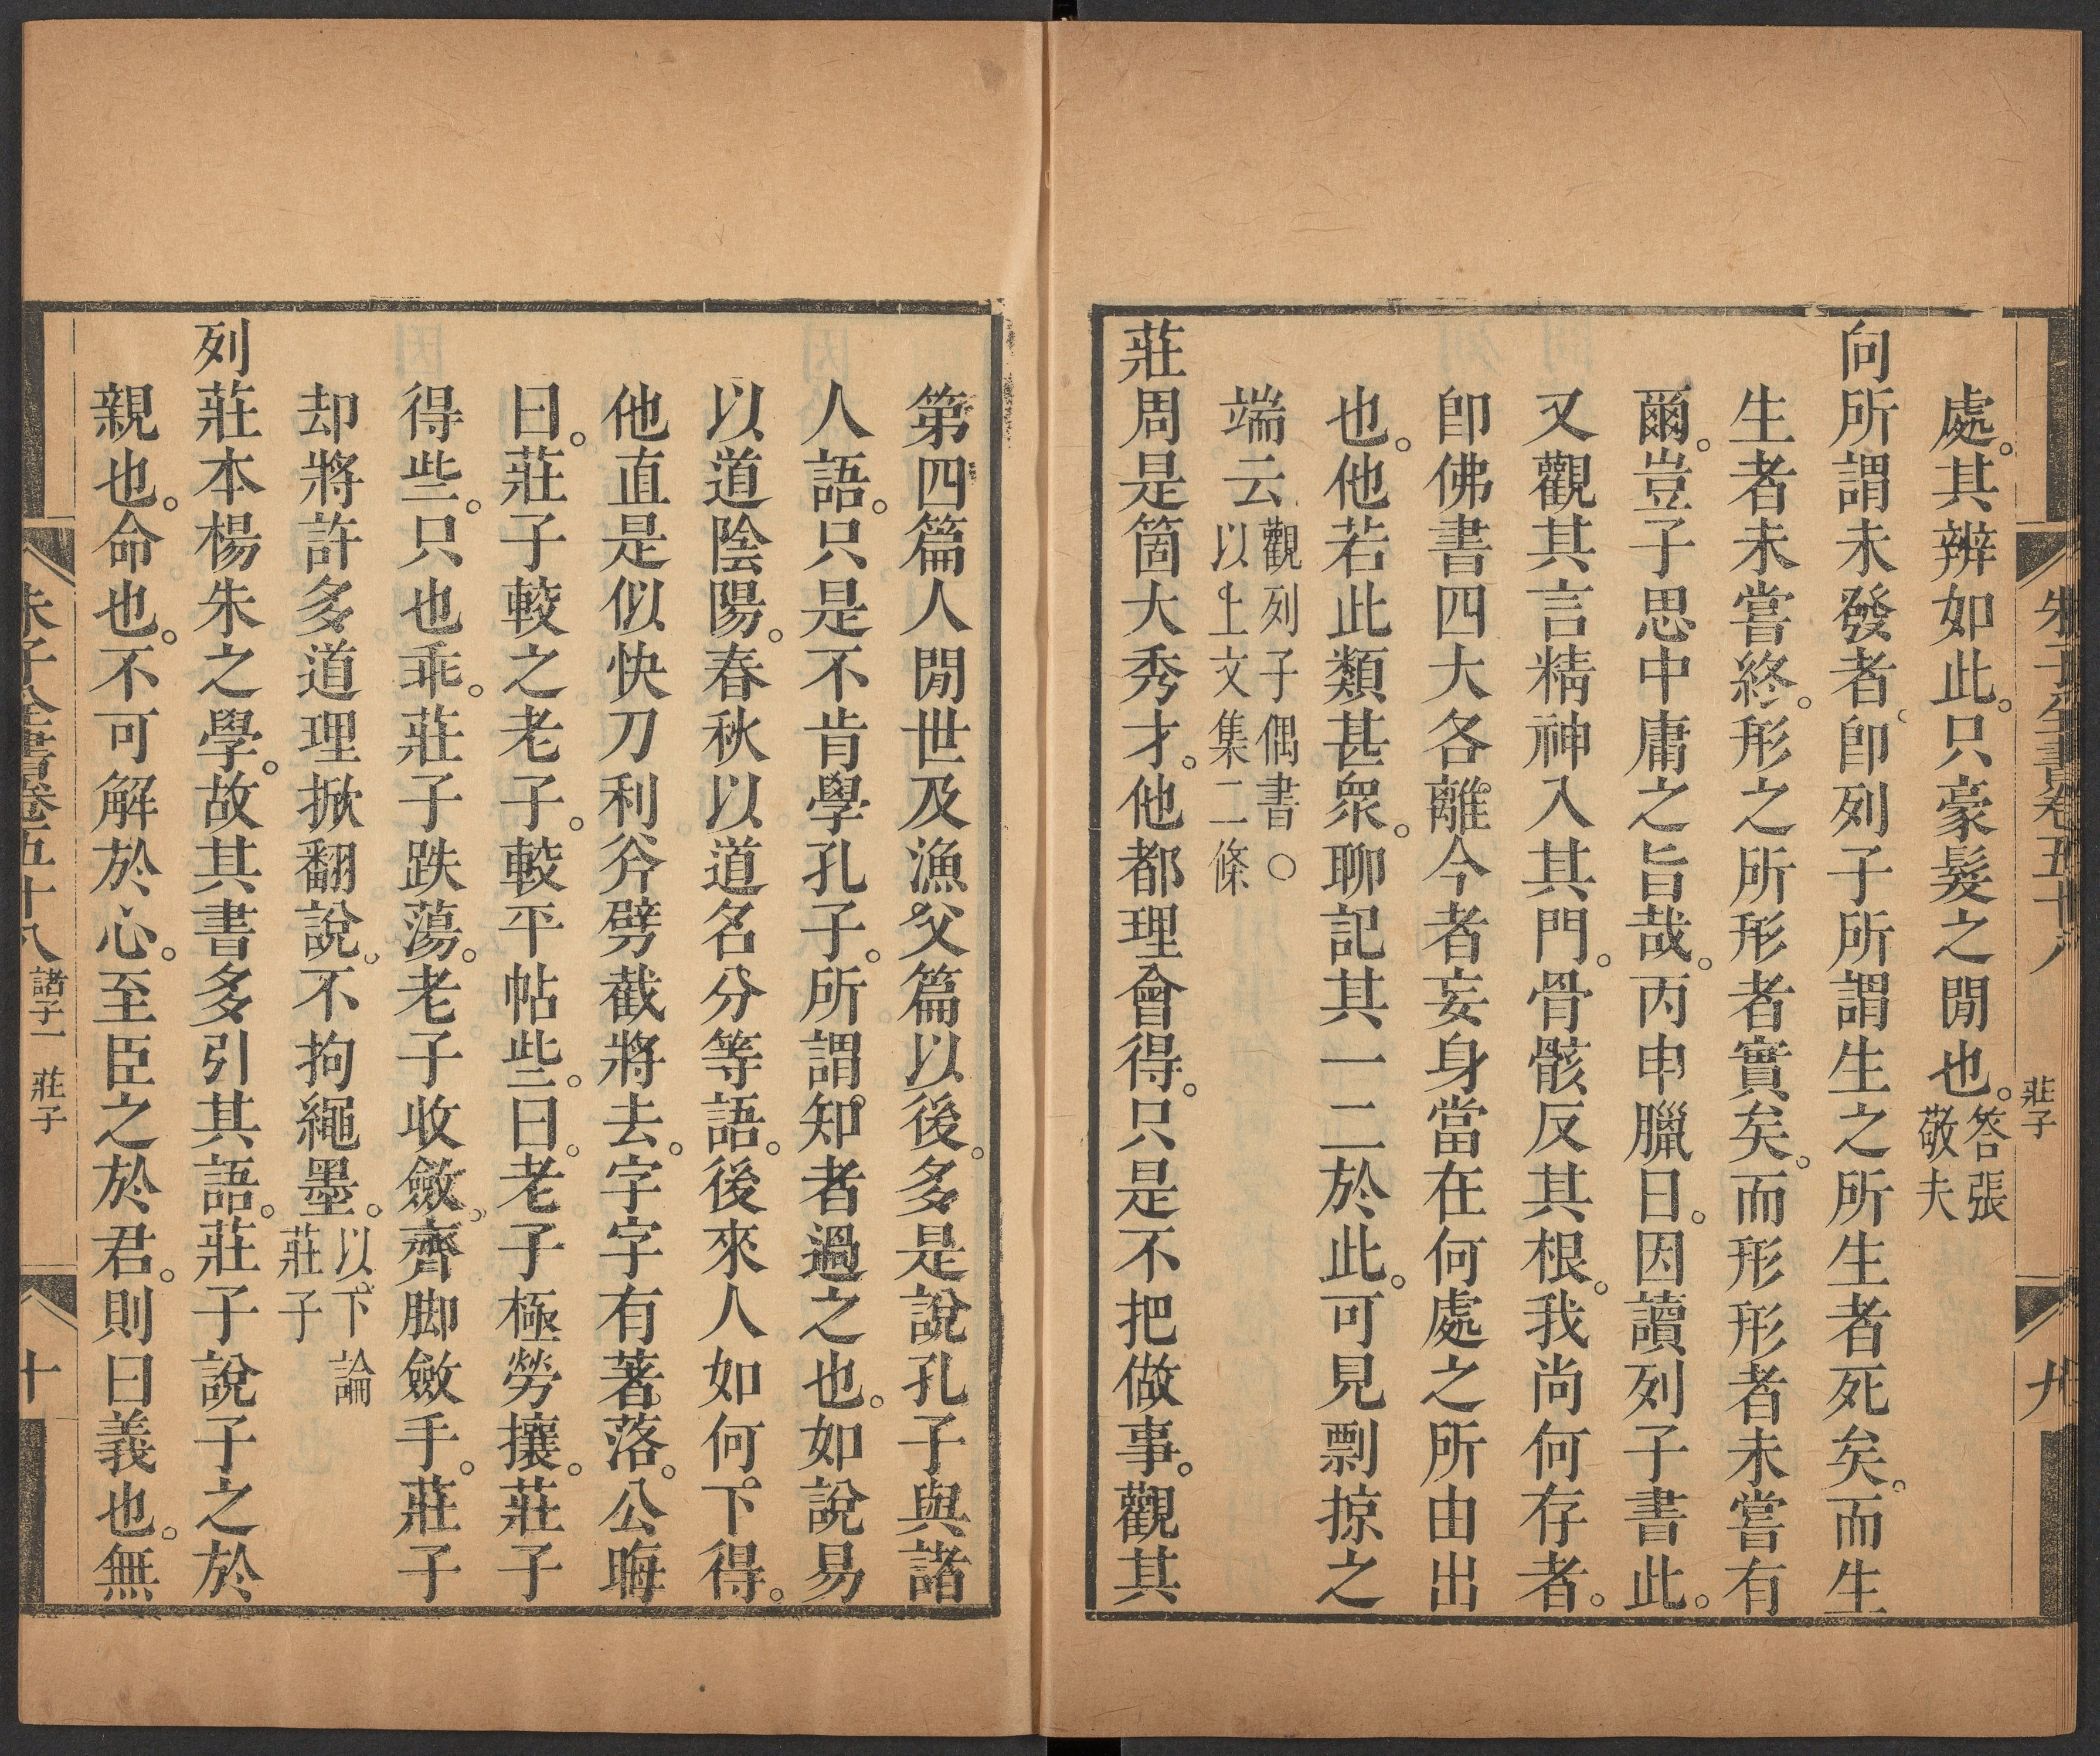 朱子全書卷五十八
莊子
九
處。其辨如此。只豪髮之閒也。答張
敬夫
向所謂未發者。卽列子所謂生之所生者死矣。而生
生者未嘗終。形之所形者實矣。而形形者未嘗有
爾。豈子思中庸之旨哉。丙申臘日。因讀列子書此。
又觀其言精神入其門。骨骸反其根。我尚何存者。
卽佛書四大各離。今者妄身當在何處之所由出
也。他若此類甚衆。聊記其一二於此。可見剽掠之
端云觀列子偶書○
以上文集二條
莊周是箇大秀才。他都理會得。只是不把做事。觀其
第四篇人閒世及漁父篇以後。多是說孔子與諸
人語。只是不肯學孔子。所謂知者過之也。如說易
以道陰陽。春秋以道名分等語。後來人如何下得。
他直是似快刀利斧劈截將去。字字有著落。公晦
曰。莊子較之老子。較平帖些。曰。老子極勞攘。莊子
得些。只也乖。莊子跌蕩。老子收斂。齊脚斂手。莊子
却將許多道理掀翻說。不拘繩墨。以下論
莊子
列莊本楊朱之學。故其書多引其語。莊子說子之於
親也。命也。不可解於心。至臣之於君。則曰義也。無
朱子全書卷五十八
諸子一 莊子
十